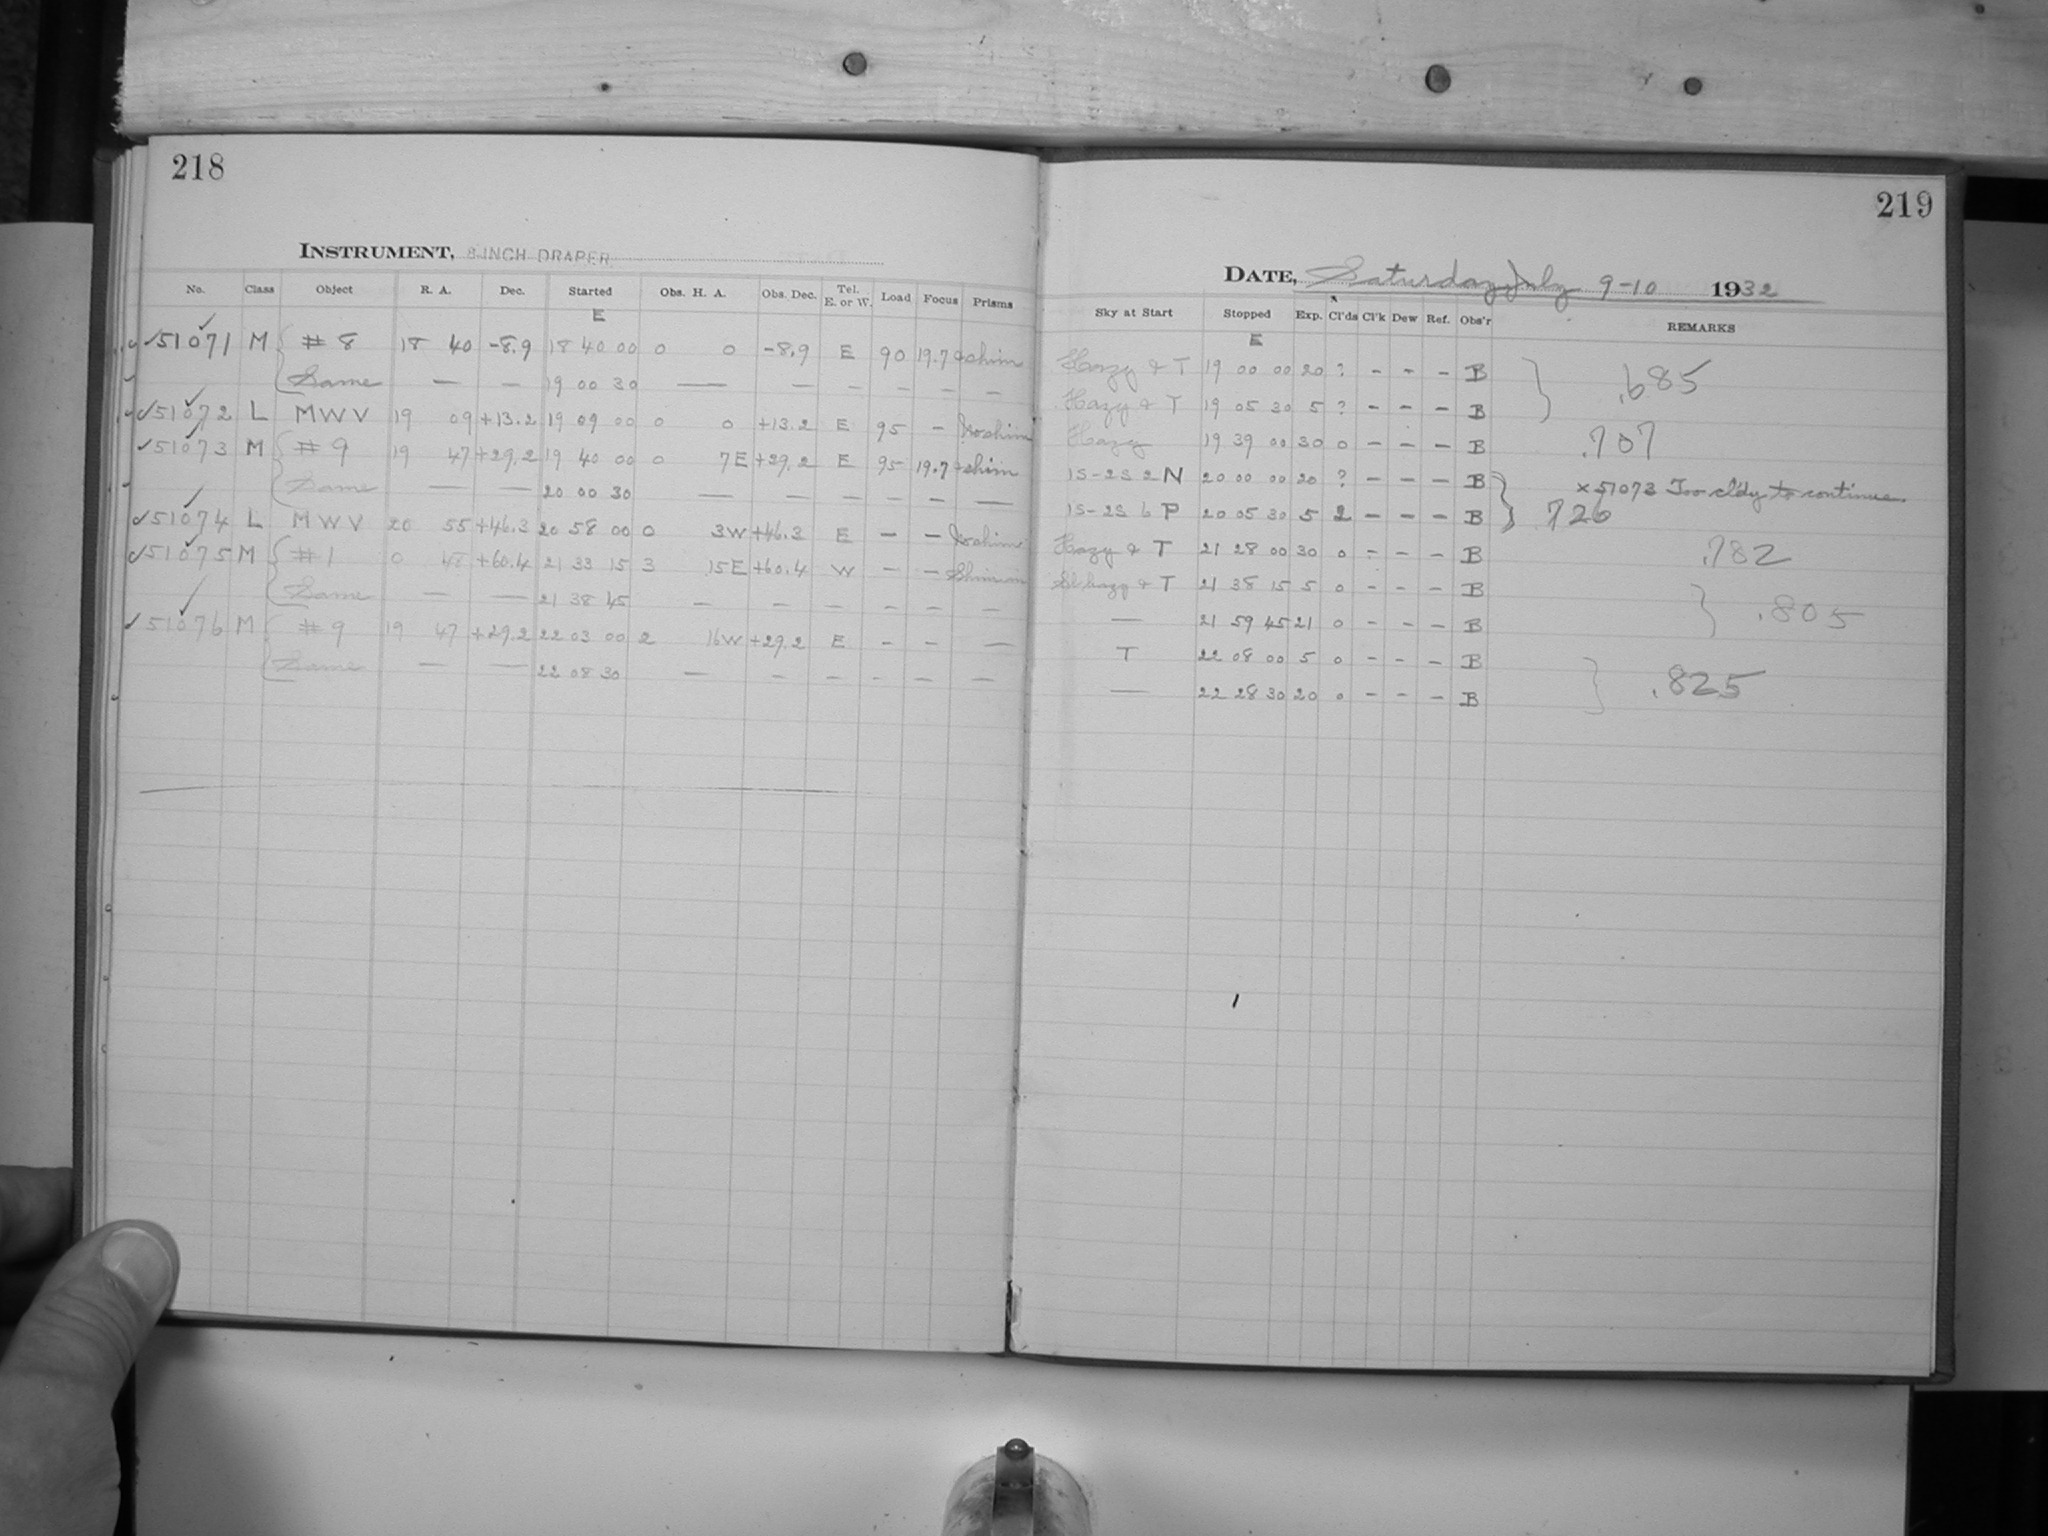 218
INSTRUMENT, 8 INCH DRAPER
No. Class Object R. A. Dec. Started Obs. H. A. Obs. Dec. Tel. E. or W. Load Focus Prisms
E
✓51071 M # 8 18 40 -8.9 18 40 00 0 0 -8.9 E 90 19.7 shim
Same — — 19 00 30 — — — — — —
✓51072 L MWV 19 09 +13.2 19 09 00 0 0 +13.2 E 95 - No shim
✓51073 M # 9 19 47 +29.2 19 40 00 0 7E +29.2 E 95 19.7 shim
Same — — 20 00 30 — — — — — —
✓51074 L MWV 20 55 +46.3 20 58 00 0 3W +46.3 E — — No shim
✓51075 M # 1 0 48 +60.4 21 33 15 3 15E +60.4 W — — Shim in
Same — — 21 38 45 — — — — — —
✓51076 M # 9 19 47 +29.2 22 03 00 2 16W +29.2 E — — —
Same — — 22 08 30 — — — — — —
219
DATE, Saturday July 9-10 1932
Sky at Start Stopped Exp. Cl'ds Cl'k Dew Ref. Obs'r REMARKS
E
Hazy & T 19 00 00 20 ? - - - B .685
Hazy & T 19 05 30 5 ? - - - B
Hazy 19 39 00 30 0 - - - B .707
1S-2S 2 N 20 00 00 20 ? - - - B x 51073 Too cl'dy to continue.
1S-2S 6 P 20 05 30 5 2 - - - B .726
Hazy & T 21 28 00 30 0 - - - B .782
Sl. hazy & T 21 38 15 5 0 - - - B
— 21 59 45 21 0 - - - B .805
T 22 08 00 5 0 - - - B
— 22 28 30 20 0 - - - B .825